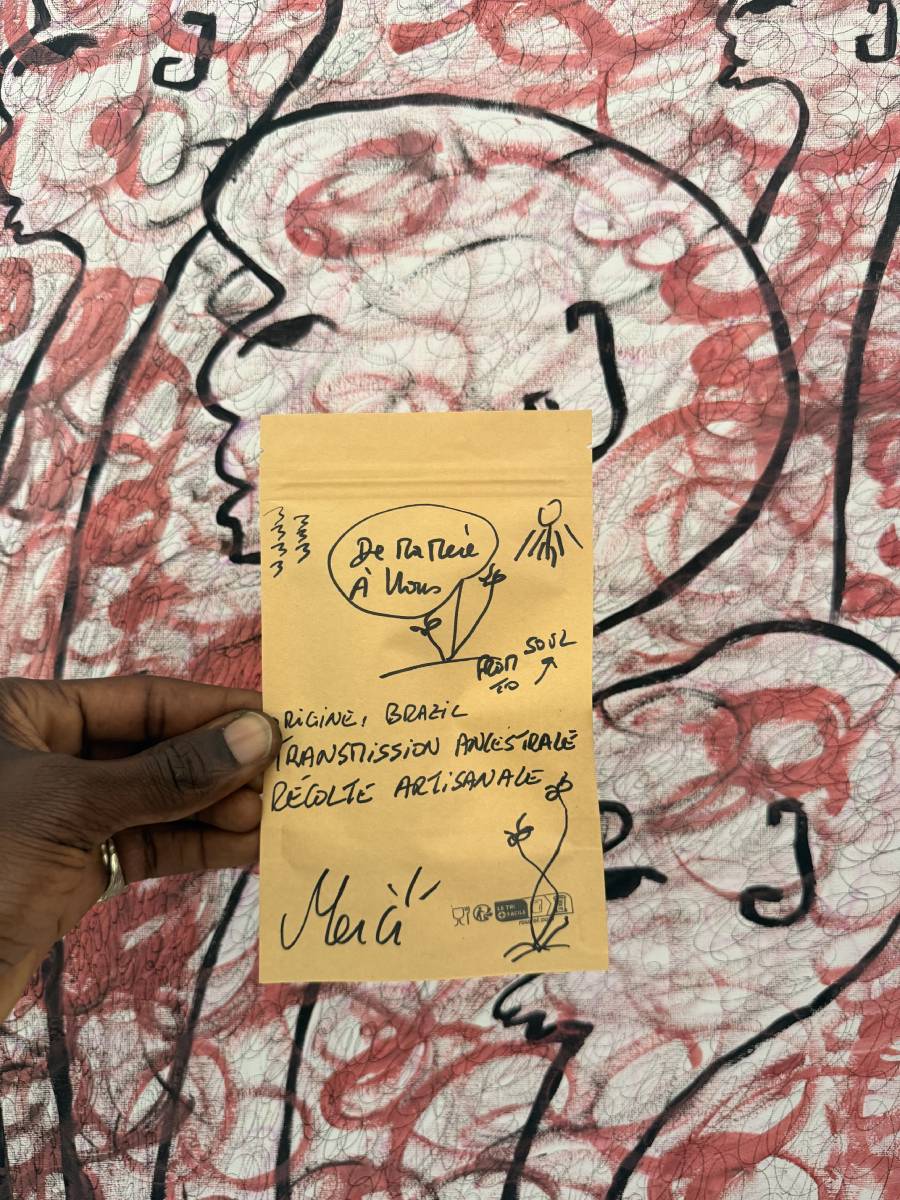 De Ma Mère
À Vous
FROM SOUL
TO
ORIGINE, BRAZIL
TRANSMISSION ANCESTRALE
RÉCOLTE ARTISANALE
Merci
LE TRI
+ FACILE